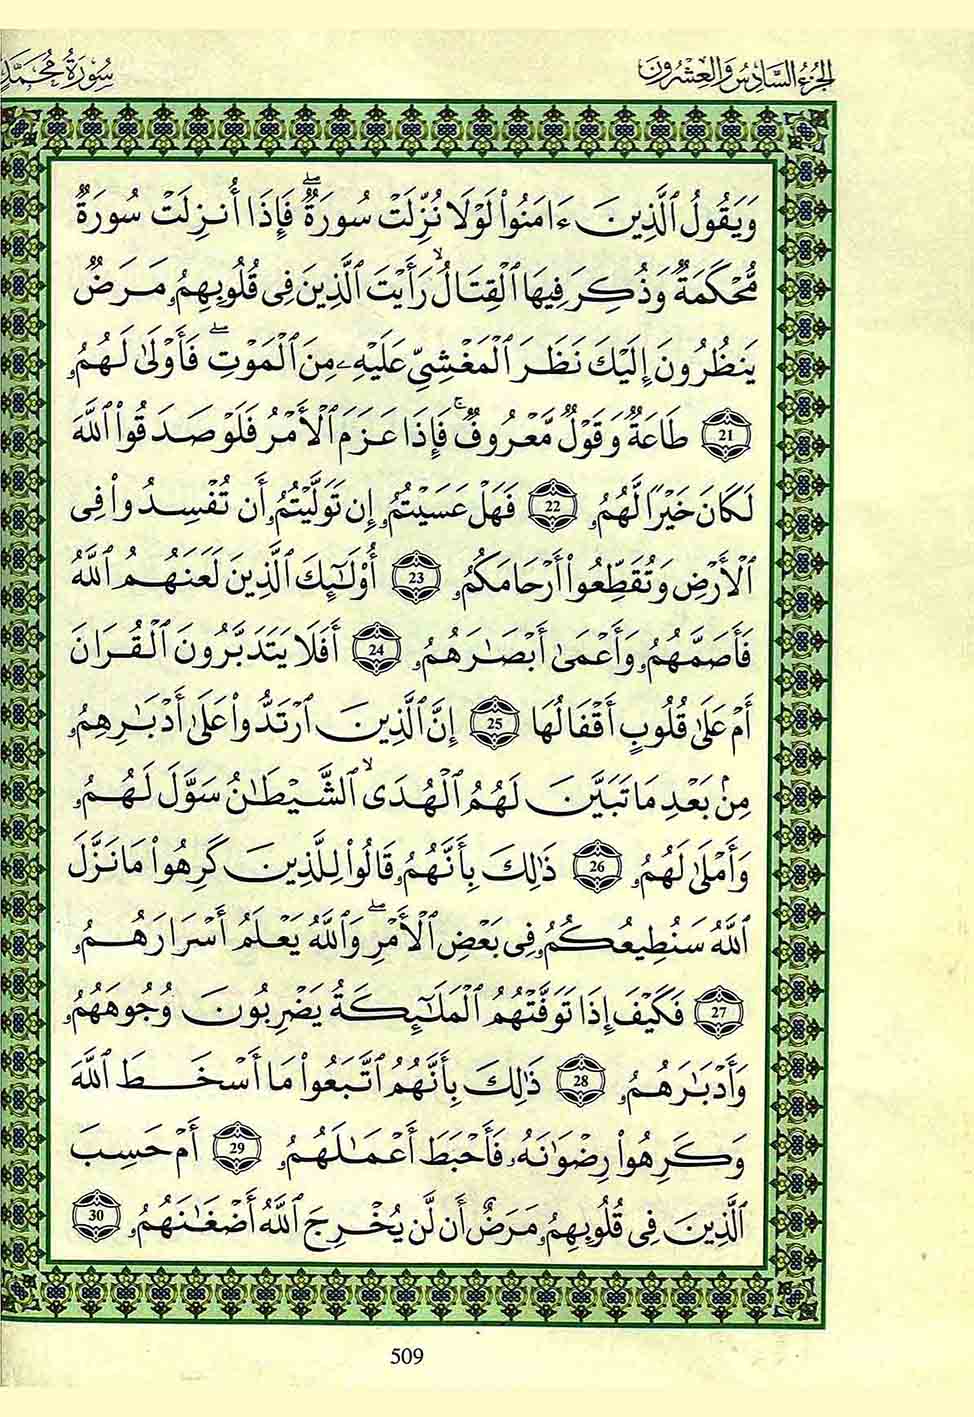 الجزء السادس والعشرون
سورة محمد
وَيَقُولُ ٱلَّذِينَ ءَامَنُوا۟ لَوْلَا نُزِّلَتْ سُورَةٌ ۖ فَإِذَا أُنزِلَتْ سُورَةٌ
مُّحْكَمَةٌ وَذُكِرَ فِيهَا ٱلْقِتَالُ ۙ رَأَيْتَ ٱلَّذِينَ فِى قُلُوبِهِمُۥ مَرَضٌ
يَنظُرُونَ إِلَيْكَ نَظَرَ ٱلْمَغْشِىِّ عَلَيْهِۦ مِنَ ٱلْمَوْتِ ۖ فَأَوْلَىٰ لَهُمُۥ
21 طَاعَةٌ وَقَوْلٌ مَّعْرُوفٌ ۚ فَإِذَا عَزَمَ ٱلْأَمْرُ فَلَوْ صَدَقُوا۟ ٱللَّهَ
لَكَانَ خَيْرًا لَّهُمُۥ 22 فَهَلْ عَسَيْتُمُۥ إِن تَوَلَّيْتُمُۥ أَن تُفْسِدُوا۟ فِى
ٱلْأَرْضِ وَتُقَطِّعُوا۟ أَرْحَامَكُمُۥ 23 أُو۟لَـٰٓئِكَ ٱلَّذِينَ لَعَنَهُمُ ٱللَّهُ
فَأَصَمَّهُمُۥ وَأَعْمَىٰ أَبْصَـٰرَهُمُۥ 24 أَفَلَا يَتَدَبَّرُونَ ٱلْقُرَانَ
أَمْ عَلَىٰ قُلُوبٍ أَقْفَالُهَا 25 إِنَّ ٱلَّذِينَ ٱرْتَدُّوا۟ عَلَىٰ أَدْبَـٰرِهِمُۥ
مِنۢ بَعْدِ مَا تَبَيَّنَ لَهُمُ ٱلْهُدَى ۙ ٱلشَّيْطَـٰنُ سَوَّلَ لَهُمُۥ
وَأَمْلَىٰ لَهُمُۥ 26 ذَٰلِكَ بِأَنَّهُمُۥ قَالُوا۟ لِلَّذِينَ كَرِهُوا۟ مَا نَزَّلَ
ٱللَّهُ سَنُطِيعُكُمُۥ فِى بَعْضِ ٱلْأَمْرِ ۖ وَٱللَّهُ يَعْلَمُ أَسْرَارَهُمُۥ
27 فَكَيْفَ إِذَا تَوَفَّتْهُمُ ٱلْمَلَـٰٓئِكَةُ يَضْرِبُونَ وُجُوهَهُمُۥ
وَأَدْبَـٰرَهُمُۥ 28 ذَٰلِكَ بِأَنَّهُمُ ٱتَّبَعُوا۟ مَا أَسْخَطَ ٱللَّهَ
وَكَرِهُوا۟ رِضْوَٰنَهُۥ فَأَحْبَطَ أَعْمَـٰلَهُمُۥ 29 أَمْ حَسِبَ
ٱلَّذِينَ فِى قُلُوبِهِمُۥ مَرَضٌ أَن لَّن يُخْرِجَ ٱللَّهُ أَضْغَـٰنَهُمُۥ 30
509